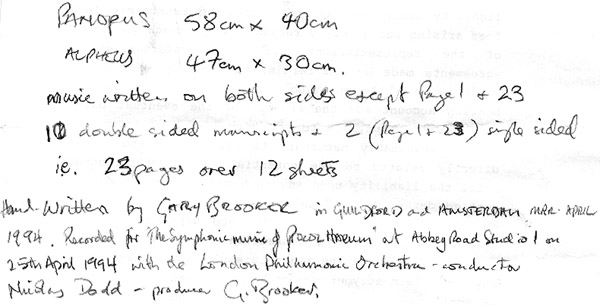 PANOPUS 58cm x 40cm
ALPHEUS 47cm x 30cm.
music written on both sides except Page 1 + 23
10 double sided manuscripts + 2 (Page 1 + 23) single sided
ie. 23 pages over 12 sheets
Hand-Written by GARY BROOKER in GUILDFORD and AMSTERDAM MAR-APRIL
1994. Recorded for "The Symphonic music of PROCOL HARUM" at Abbey Road Studio 1 on
25th April 1994 with the London Philharmonic Orchestra - conductor
Nicholas Dodd - producer G. Brooker.